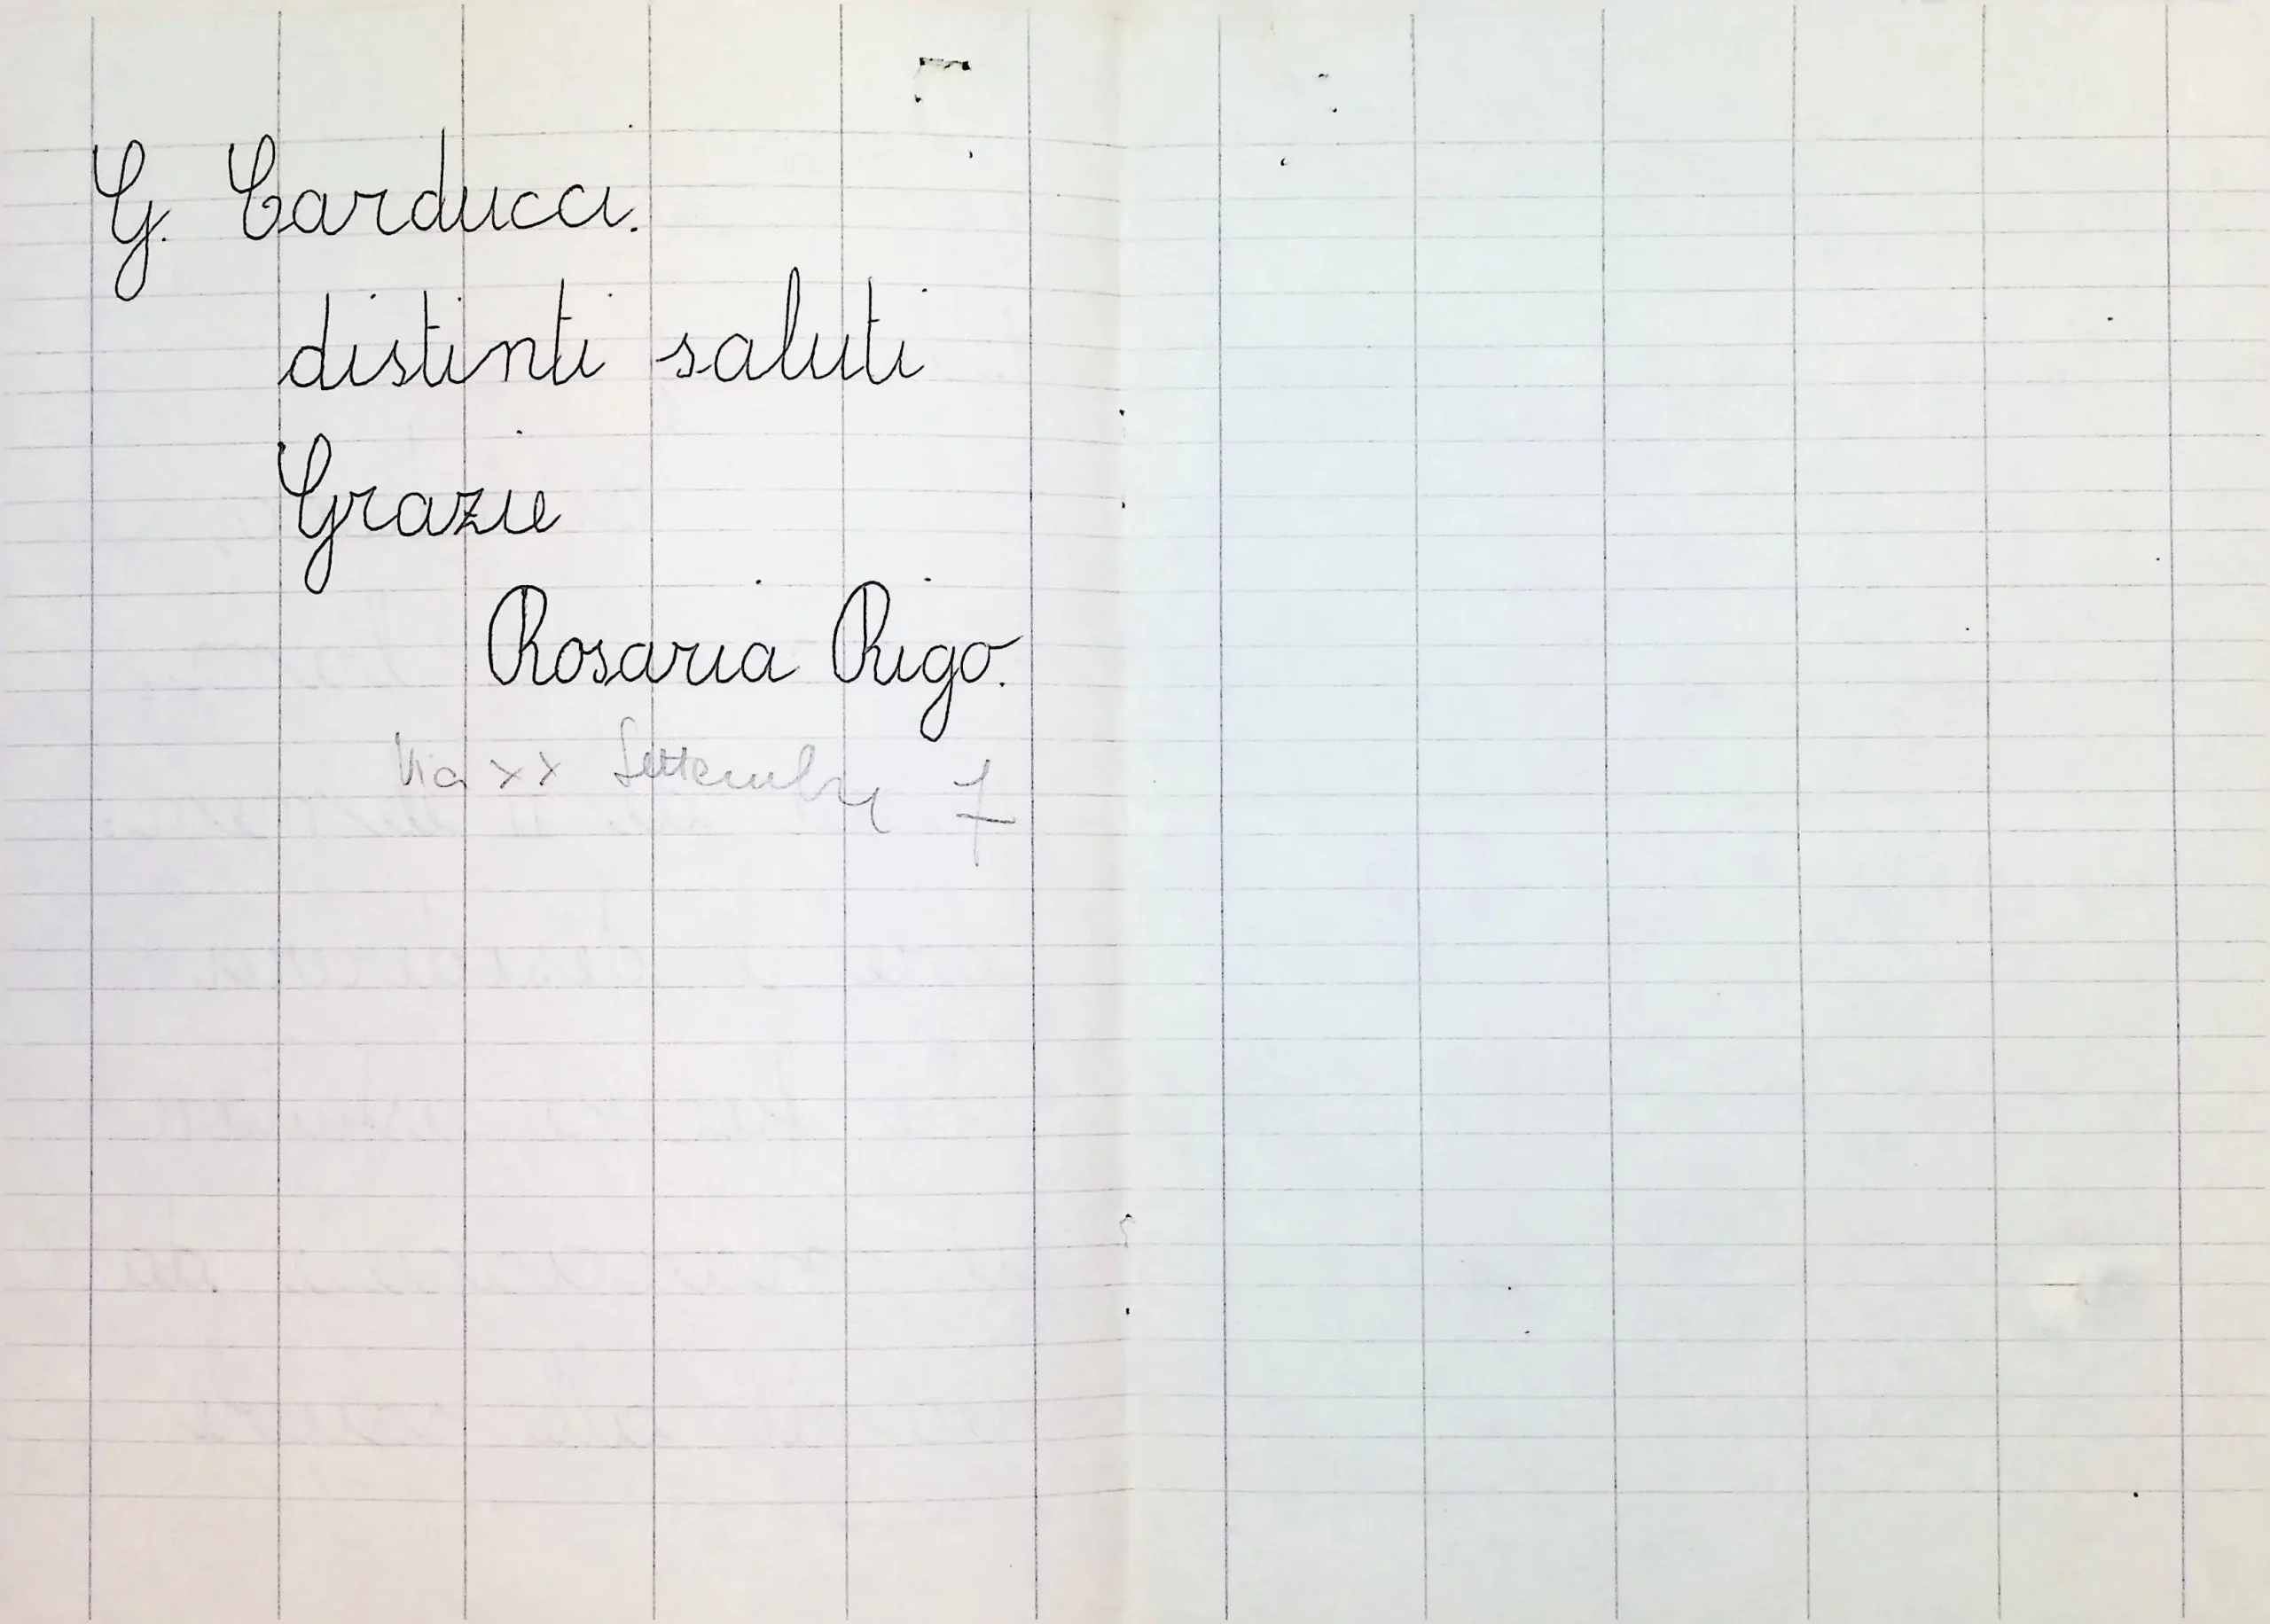 G. Carducci.
distinti saluti
Grazie
Rosaria Rigo.
Via XX Settembre 7